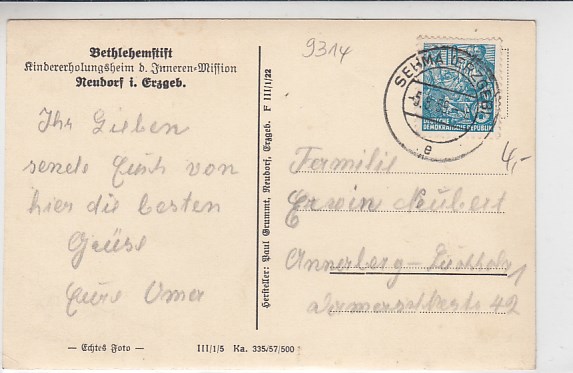 Bethlehemstift
Kindererholungsheim d. Inneren-Mission
Neudorf i. Erzgeb.
Ihr Lieben
sende Euch von
hier die besten
Grüße
Eure Oma
— Echtes Foto —
III/1/5 Ka. 335/57/500
Hersteller: Paul Grummt, Neudorf, Erzgeb. F III/1/22
9314
SEHMA (ERZGEB)
e
DEUTSCHE
DEMOKRATISCHE REPUBLIK
4,-
Familie
Erwin Neubert
Annerberg-Buchholz
42